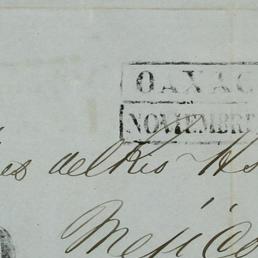 OAXAC
NOVIEMBRE
es del Rio H
Mejico